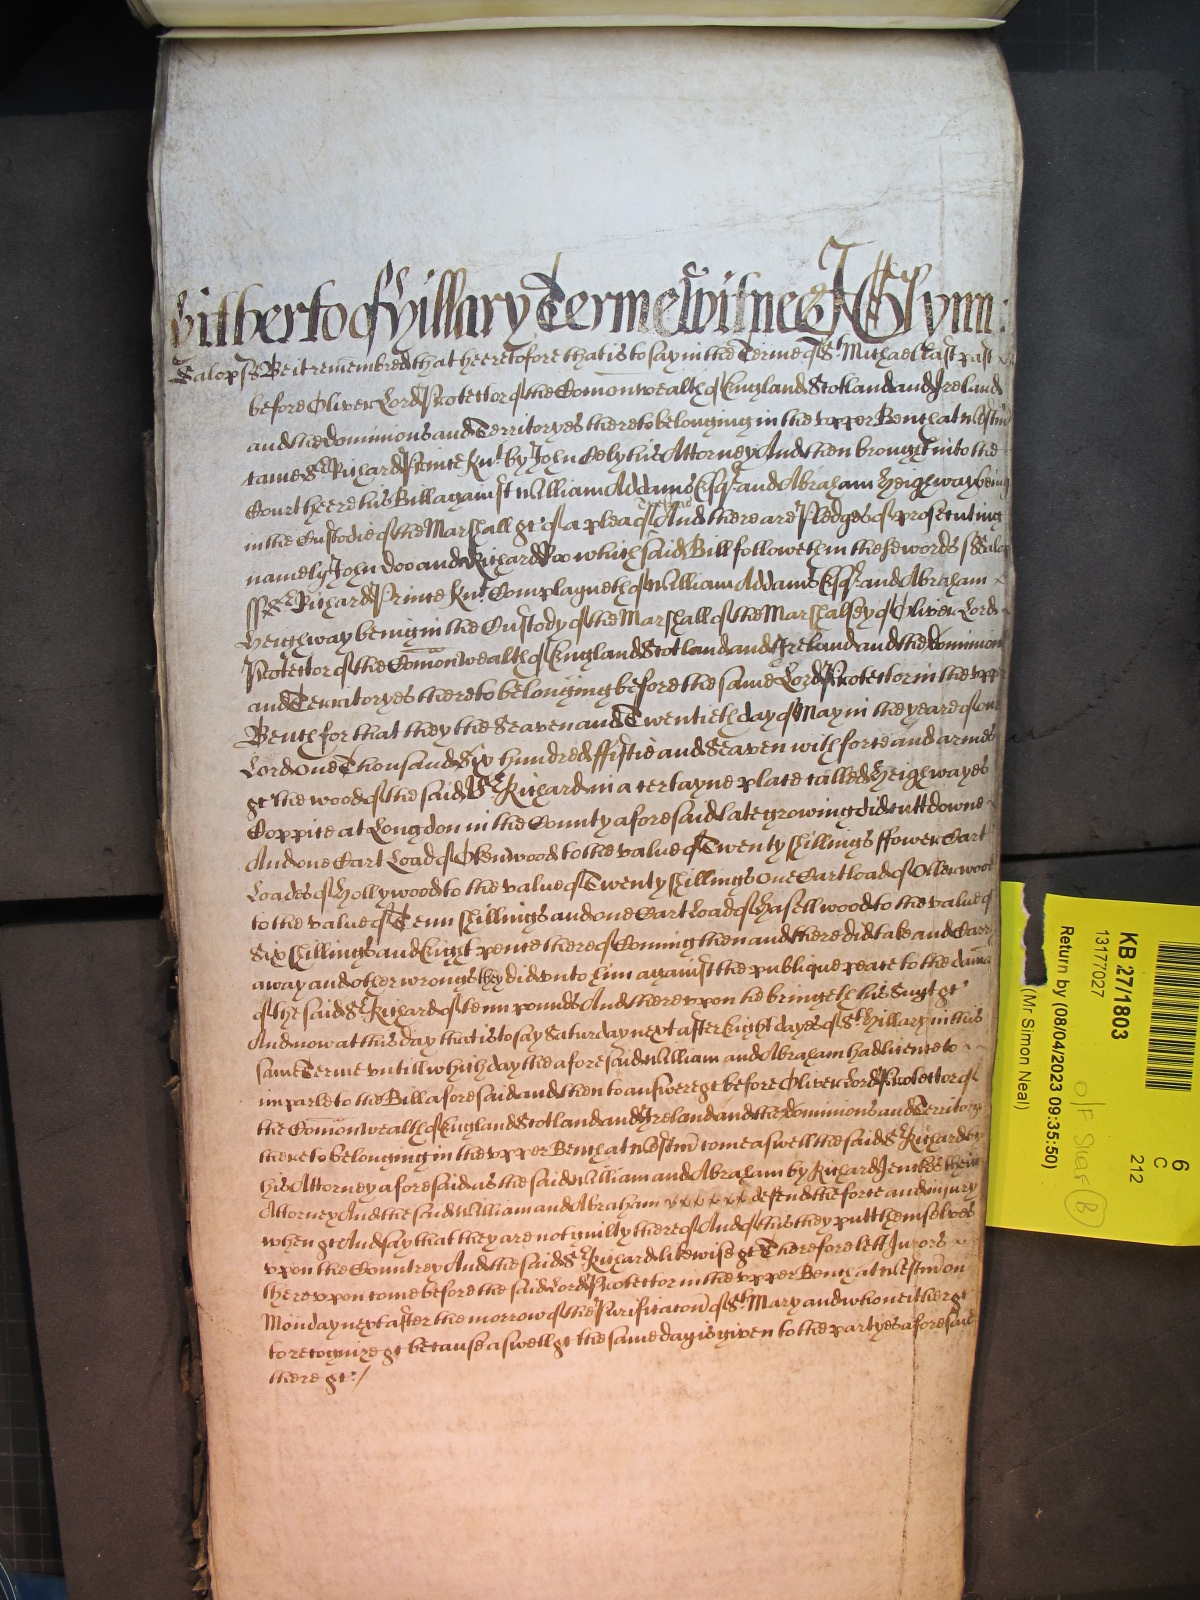 hitherto of Hillary Terme Witnes J Glynn:
Salop ss Be it remembred that heeretofore that is to say in the Terme of St. Michael last past
before Oliver Lord Protector of the Comonwealth of England Scotland and Ireland
and the dominions and Territoryes thereto belonging in the vpper Bench at Westm
came Sr Richard Prince Knt. by John Cely his Attorney And then brought into the
Court heere his Bill against William Addams Esqr. and Abraham Heighway being
in the Custodie of the Marshall &c of a plea of Trespas And there are Pledges of prosecuting
namely John Doo and Richard Roo which said Bill followeth in these words ss Salop
ss Sr Richard Prince Knt. Complayneth of William Addams Esqr. and Abraham
Heighway being in the Custody of the Marshall of the Marshalsey of Oliver Lord
Protector of the Comonwealth of England Scotland and Ireland and the Dominions
and Territoryes thereto belonging before the same Lord Protector in the vpper
Bench for that they the Seaven and Twentieth day of May in the yeare of our
Lord One Thousand Six hundred ffiftie and Seaven with force and armes
&c the wood of the said Sr. Richard in a certayne place called Heighwayes
Coppice at Longdon in the County aforesaid late growing did cutt downe
And one Cart Load of Oken wood to the value of Twenty shillings ffower Cart
Loades of Hollywood to the value of Twenty shillings One Cart load of Ollerwood
to the value of Tenn shillings and one Cart Load of Hasell wood to the value of
Six shillings and Eight pence thereof Coming then and there did take and Carry
away and other wrongs they did vnto him against the publique peace to the damage
of the said Sr. Richard of tenn pounds And therevpon he bringeth his Suyt &c
And now at this day that is to say Saturday next after Eight dayes of St. Hillary in this
same Terme vntill which day the aforesaid William and Abraham had licence to
imparle to the Bill aforesaid and then to answere &c before Oliver Lord Protector of
the Comonwealth of England Scotland and Ireland and the Dominions and Territoryes
thereto belonging in the vpper Bench at Westm come aswell the said Sr. Richard by
his Attorney aforesaid as the said William and Abraham by Richard Jenckes their
Attorney And the said William and Abraham defend the force and injury
when &c And say that they are not guilty thereof And of this they putt themselves
vpon the Countrey And the said Sr. Richard likewise &c Therefore lett Jurors
therevpon come before the said Lord Protector in the vpper Bench at Westm on
Monday next after the morrow of the Purificacon of St. Mary and who neither &c
to recognize &c because aswell &c the same day is given to the partyes aforesaid
there &c:/
KB 27/1803
13177027
Return by (08/04/2023 09:35:50)
(Mr Simon Neal)
6
C
212
O/F Staf B